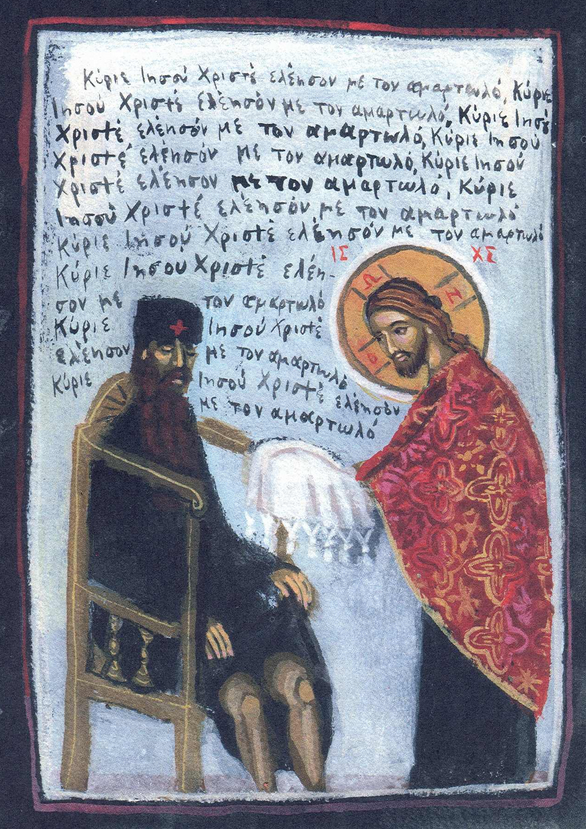 Κύριε Ιησού Χριστέ ελέησον με τον αμαρτωλό, Κύριε
Ιησού Χριστέ ελέησόν με τον αμαρτωλό, Κύριε Ιησού
Χριστέ ελέησόν με τον αμαρτωλό, Κύριε Ιησού
Χριστέ ελέησόν με τον αμαρτωλό, Κύριε Ιησού
Χριστέ ελέησον με τον αμαρτωλό, Κύριε
Ιησού Χριστέ ελέησόν με τον αμαρτωλό
Κύριε Ιησού Χριστέ ελέησόν με τον αμαρτωλό
Κύριε Ιησού Χριστέ ελέη-
σον με τον αμαρτωλό
Κύριε Ιησού Χριστέ
ελέησον με τον αμαρτωλό
Κύριε Ιησού Χριστέ ελέησόν
με τον αμαρτωλό
ΙΣ ΧΣ
Ο Ω Ν